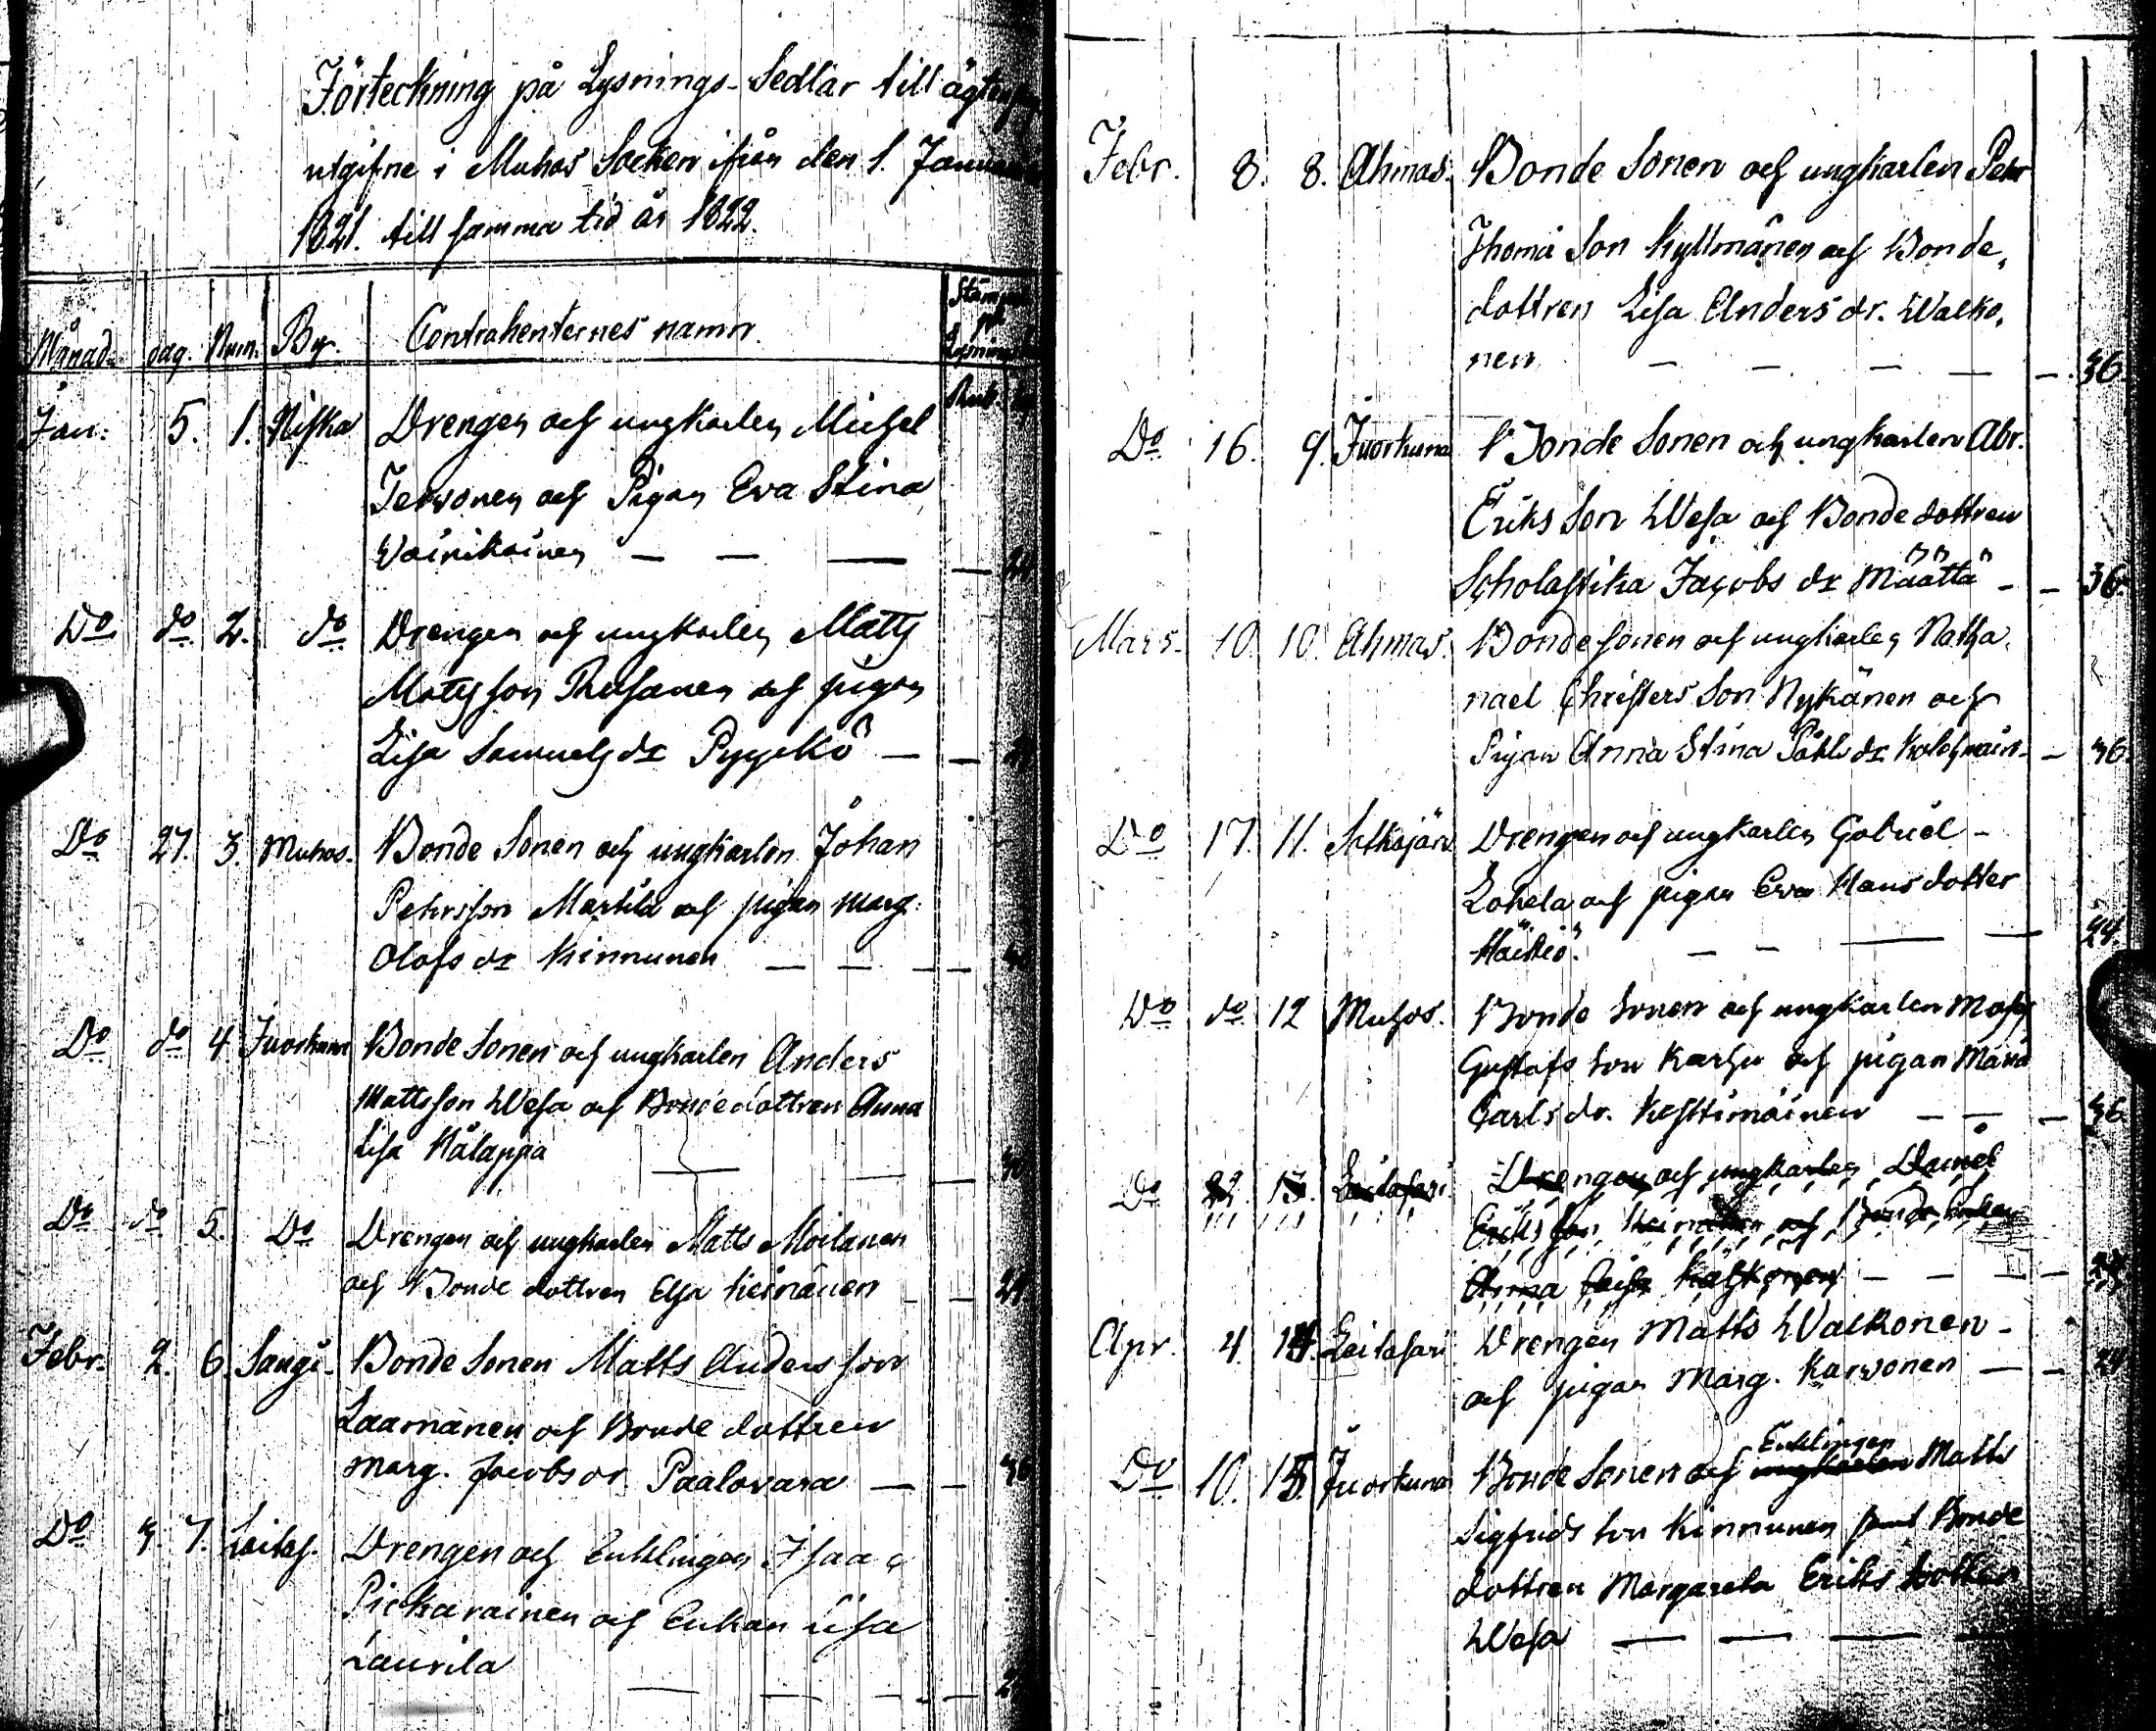 Förteckning på Lysnings-Sedlar till ägten
utgifne i Muhos Socken ifrån den 1. Januar
1821. till samma tid år 1822.
Månad. dag. Num. By. Contrahenternes namn.
Rub.
Jan: 5. 1. Niska Drengen och ungkarlen Michel
Terwonen och Pigan Eva Stina
Wäinikainen — — — — 24
Do do 2. do Drengen och ungkarlen Matts
Mattsson Russanen och pigan
Lisa Samuels dr Pyykkö — —
Do 27. 3. Muhos. Bonde Sonen och ungkarlen Johan
Pehrsson Marttila och pigan Marg.
Olofs dr Kinnunen — — — —
Do do 4. Juorkuna Bonde Sonen och ungkarlen Anders
Mattsson Wesa och Bondedottren Anna
Lisa Kälappa — — —
Do do 5. Do Drengen och ungkarlen Matts Moilanen
och Bonde dottren Elsa Keinänen — — 24
Febr. 2. 6. Sangi. Bonde Sonen Matts Anders son
Laamanen och Bonde dottren
Marg. Jacobs dr Paalovara — — 36
Do 7. Laitas. Drengen och Enklingen Isaac
Pickarainen och Enkan Lisa
Laurila — — — —
Febr. 8. 8. Ahmas. Bonde Sonen och ungkarlen Pehr
Thomä Son Kyllmänen och Bonde,
dottren Lisa Anders dr. Walko,
nen — — — — — 36.
Do 16. 9. Juorkuna Bonde Sonen och ungkarlen Abr.
Eriks Son Wesa och Bonde dottren
Scholastika Jacobs dr Määttä — — 36.
Mars. 10. 10. Ahmas. Bonde sonen och ungkarlen Natha,
nael Christers Son Nykänen och
Pigan Anna Stina Påhls dr — 36
Do 17. 11. Sotkajärv Drengen och ungkarlen Gabriel —
Lohela och pigan Eva Klaus dotter
Häikiö. — — — — 24.
Do do 12 Muhos. Bonde Sonen och ungkarlen Mats
Gustafs Son Karhu och pigan Maria
Carls dr. Kesttimäinen — — — 36.
Do 22. 13. Laitasari Drengen och ungkarlen Daniel
Eriks Son Keinänen och Bonde
Anna Lisa — — — — 24
Apr. 4. 14. Laitasari Drengen Matts Walkonen —
och pigan Marg. Karvonen — — 24
Enklingen
Do 10. 15. Juorkuna Bonde Sonen och ungkarlen Matts
Sigfrids Son Kinnunen samt Bonde
dottren Margareta Eriks dotter
Wesa — — — —